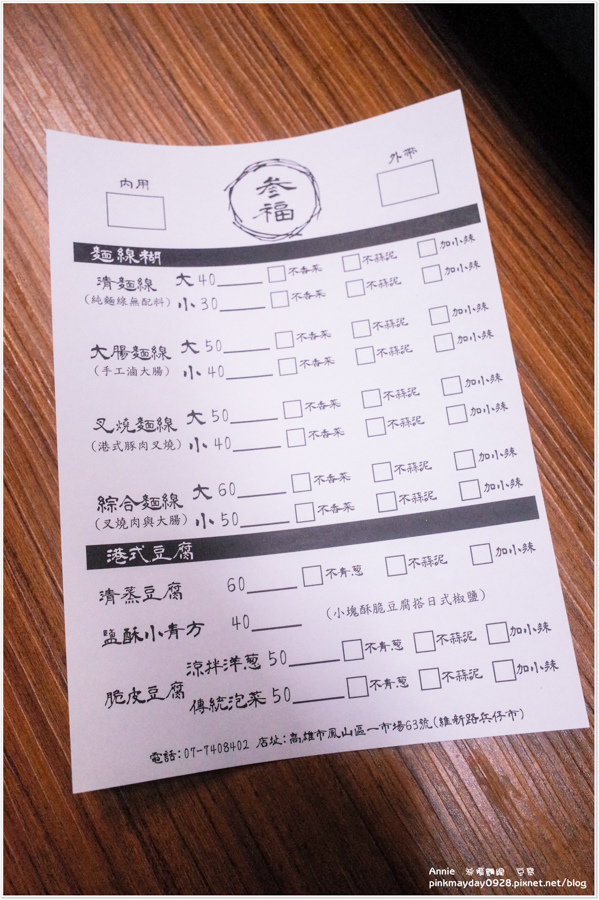 內用
外帶
叁福
麵線糊
清麵線 大 40 不香菜 不蒜泥 加小辣
(純麵線無配料) 小 30 不香菜 不蒜泥 加小辣
大腸麵線 大 50 不香菜 不蒜泥 加小辣
(手工滷大腸) 小 40 不香菜 不蒜泥 加小辣
叉燒麵線 大 50 不香菜 不蒜泥 加小辣
(港式豚肉叉燒) 小 40 不香菜 不蒜泥 加小辣
綜合麵線 大 60 不香菜 不蒜泥 加小辣
(叉燒肉與大腸) 小 50 不香菜 不蒜泥 加小辣
港式豆腐
清蒸豆腐 60 不青蔥 不蒜泥 加小辣
鹽酥小青方 40 (小塊酥脆豆腐搭日式椒鹽)
脆皮豆腐 涼拌洋蔥 50 不青蔥 不蒜泥 加小辣
傳統泡菜 50 不青蔥 不蒜泥 加小辣
電話:07-7408402 店址:高雄市鳳山區一市場63號(維新路兵仔市)
Annie
pinkmayday0928.pixnet.net/blog